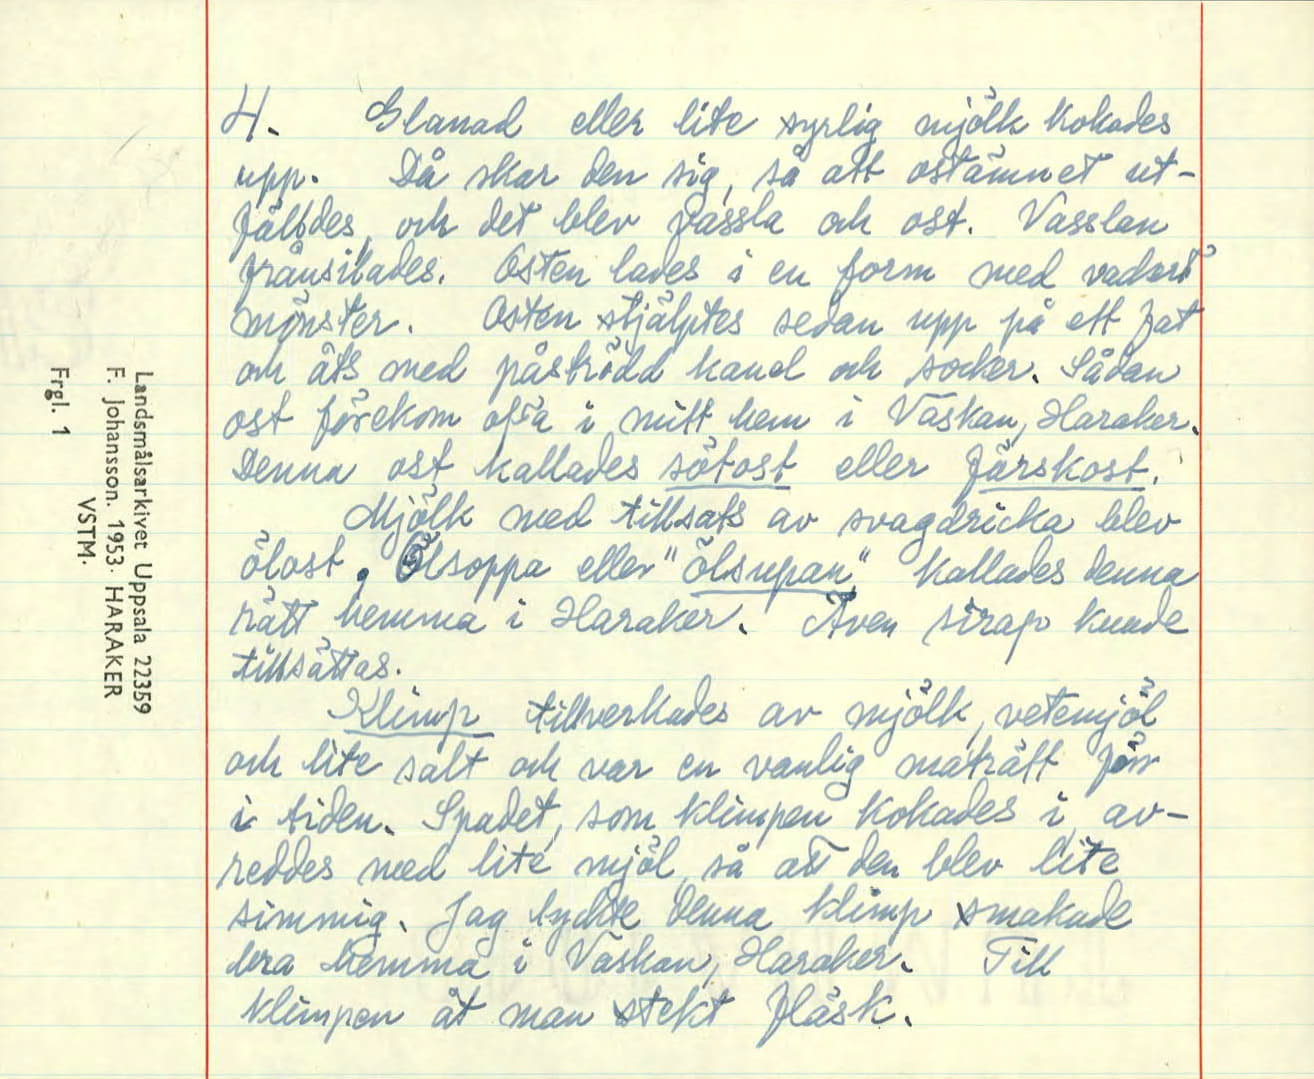 4. Glanad eller lite syrlig mjölk kokades
upp. Då skar den sig, så att ostämnet ut-
fälldes, och det blev vassla och ost. Vasslan
frånsilades. Osten lades i en form med vackert
mönster. Osten stjälptes sedan upp på ett fat
och åts med påströdd kanel och socker. Sådan
ost förekom ofta i mitt hem i Väskan, Haraker.
Denna ost kallades sötost eller färskost.
Mjölk med tillsats av svagdricka blev
ölost. Ölsoppa eller "ölsupan" kallades denna
rätt hemma i Haraker. Även sirap kunde
tillsättas.
Klimp tillverkades av mjölk, vetemjöl
och lite salt och var en vanlig maträtt förr
i tiden. Spadet, som klimpen kokades i, av-
reddes med lite mjöl, så att den blev lite
simmig. Jag tyckte denna klimp smakade
bra hemma i Väskan, Haraker. Till
klimpen åt man stekt fläsk.
Landsmålsarkivet Uppsala 22359
F. Johansson. 1953. HARAKER
VSTM.
Frgl. 1